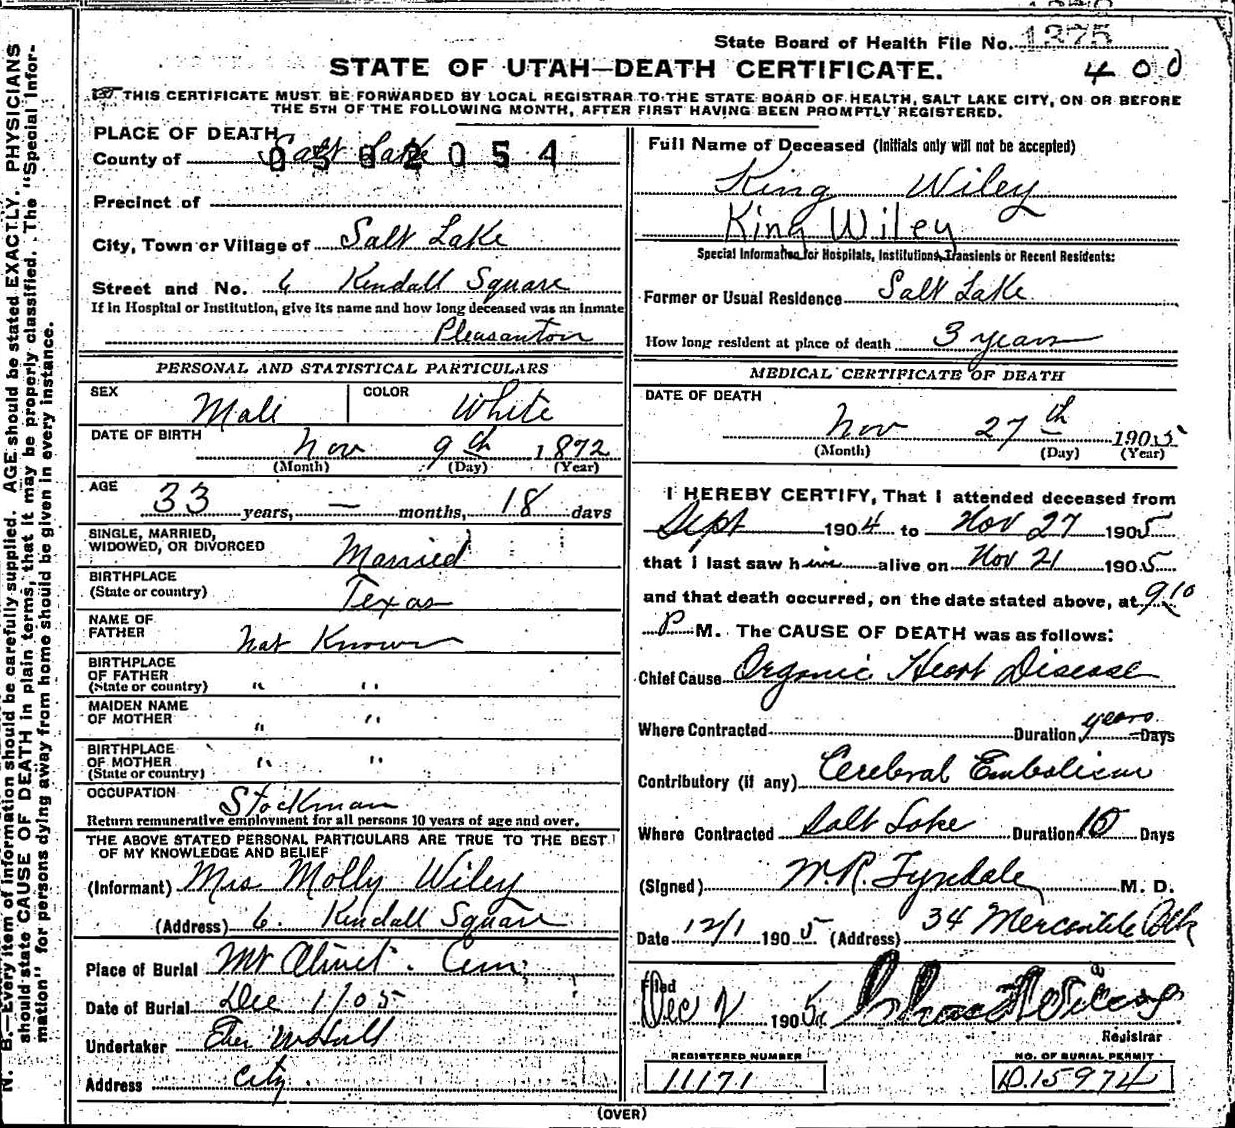 State Board of Health File No. 1375
STATE OF UTAH—DEATH CERTIFICATE.
400
THIS CERTIFICATE MUST BE FORWARDED BY LOCAL REGISTRAR TO THE STATE BOARD OF HEALTH, SALT LAKE CITY, ON OR BEFORE
THE 5TH OF THE FOLLOWING MONTH, AFTER FIRST HAVING BEEN PROMPTLY REGISTERED.
PLACE OF DEATH
County of Salt Lake
Precinct of
City, Town or Village of Salt Lake
Street and No. 6 Kendall Square
If in Hospital or Institution, give its name and how long deceased was an inmate
Pleasanton
PERSONAL AND STATISTICAL PARTICULARS
SEX Male COLOR White
DATE OF BIRTH Nov 9th 1872
(Month) (Day) (Year)
AGE 33 years, — months, 18 days
SINGLE, MARRIED,
WIDOWED, OR DIVORCED Married
BIRTHPLACE
(State or country) Texas
NAME OF
FATHER Not Known
BIRTHPLACE
OF FATHER
(State or country) " "
MAIDEN NAME
OF MOTHER " "
BIRTHPLACE
OF MOTHER
(State or country) " "
OCCUPATION Stockman
Return remunerative employment for all persons 10 years of age and over.
THE ABOVE STATED PERSONAL PARTICULARS ARE TRUE TO THE BEST
OF MY KNOWLEDGE AND BELIEF
(Informant) Mrs Molly Wiley
(Address) 6. Kendall Square
Place of Burial Mt Olivet. Cem.
Date of Burial Dec 1/05
Undertaker Eber W Hall
Address City.
Full Name of Deceased (Initials only will not be accepted)
King Wiley
King Wiley
Special Information for Hospitals, Institutions, Transients or Recent Residents:
Former or Usual Residence Salt Lake
How long resident at place of death 3 years
MEDICAL CERTIFICATE OF DEATH
DATE OF DEATH
Nov 27th 1905
(Month) (Day) (Year)
I HEREBY CERTIFY, That I attended deceased from
Sept 1904 to Nov 27 1905
that I last saw him alive on Nov 21 1905
and that death occurred, on the date stated above, at 9 10
P M. The CAUSE OF DEATH was as follows:
Chief Cause Organic Heart Disease
Where Contracted Duration years Days
Contributory (if any) Cerebral Embolism
Where Contracted Salt Lake Duration Days
(Signed) W.R. Tyndale M. D.
Date 12/1 1905 (Address) 34 Mercantile Blk
Filed
Dec 2 1905
Registrar
REGISTERED NUMBER
11171
NO. OF BURIAL PERMIT
D.15974
(OVER)
N. B.—Every item of information should be carefully supplied. AGE should be stated EXACTLY. PHYSICIANS
should state CAUSE OF DEATH in plain terms, that it may be properly classified. The "Special Infor-
mation" for persons dying away from home should be given in every instance.